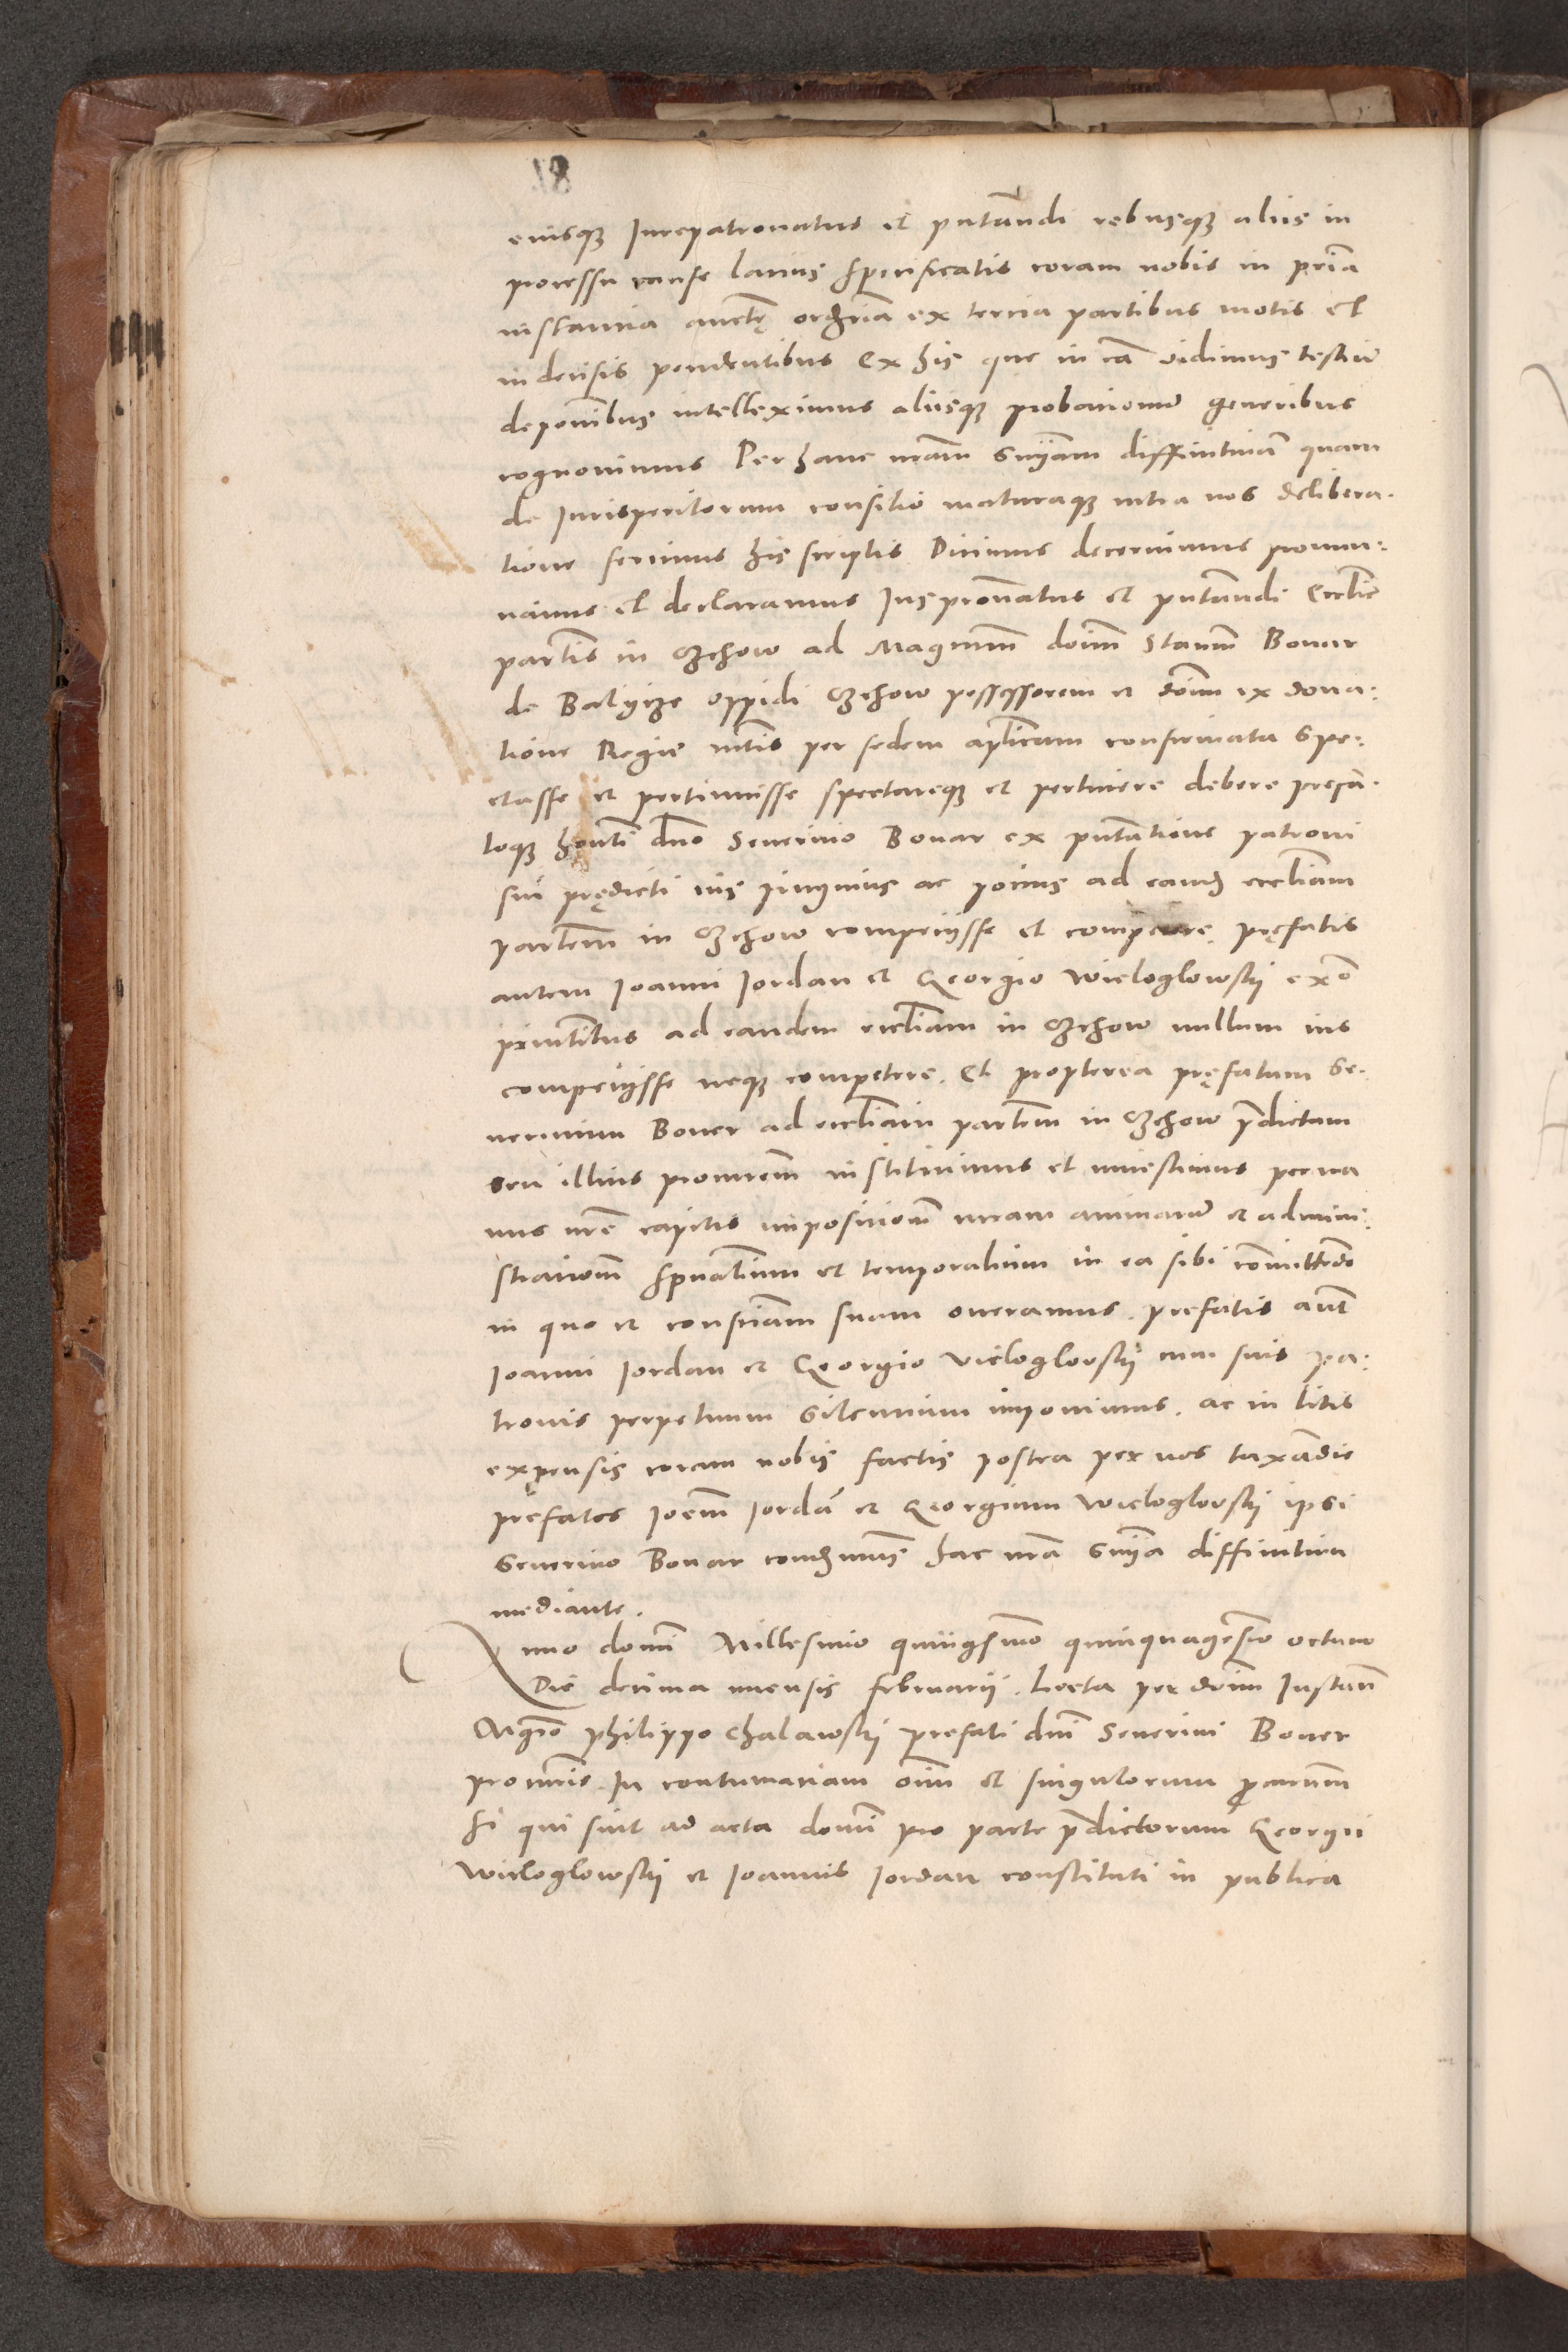 81
eiusq3 Jurepatronatus et pntandi rebusq3 aliis in
processu cause latius specificatis coram nobis in pria
instancia aucte ordria ex tercia partibus motis et
indecisis pendentibus Ex his que in ca vidimus testiu
deponibus intelleximus aliisq3 probacionu generibus
cognovimus Per hanc nram sniam diffinitivam quam
de Jurisperitorum consilio maturaq3 intra nos delibera-
tione ferimus his scriptis Dicimus decernimus pronun-
ciamus et declaramus Juspronatus et pntandi Ecclie
partis in Czchow ad Magcum doim Stanm Bonar
de Balycze oppidi Czchow possessorem et doim ex dona-
tione Regie mtis per sedem aplicam confirmata spe-
ctasse et pertinuisse spectareq3 et pertinere debere
toq3 dno Severino Bonar ex pntatione patroni
sui predicti ius pinguius ac pocius ad eand eccliam
partem in Czchow compeciisse et competere, prefatis
autem Joanni Jordan et Georgio Wieloglowskij ex
pntatibus ad eandem eccliam in Czchow nullum ius
competiisse neq3 competere. Et propterea prefatum Se-
verinum Boner ad eccliam partem in Czchow pdictam
seu illius instituimus et investimus per
nus nre capitis imposicionem curam animarum et admini-
stracionem spualium et temporalium in ea sibi comittendo
in quo et consciam suam oneramus. prefatis aut
Joanni Jordan et Georgio Vieloglovskij cum suis pa-
tronis perpetuum silencium imponimus. ac in litis
expensis coram nobis factis postea per nos taxadis
prefatos Joem Jorda et Georgium Wieloglovskij ipsi
Severino Bonar condnmus hac nra snia diffinitiva
mediante.
Anno domi Millesimo quingsimo quinquagesimo octavo
Die decima mensis februarii. Lecta per doim Instan
Mgro Philippo Chalawskij prefati dni Severini Boner
procuris In contumaciam oim et singulorum procurum
si qui sint ad acta domi pro parte pdictorum Georgii
Wieloglowskij et Joannis Jordan constituti in publica